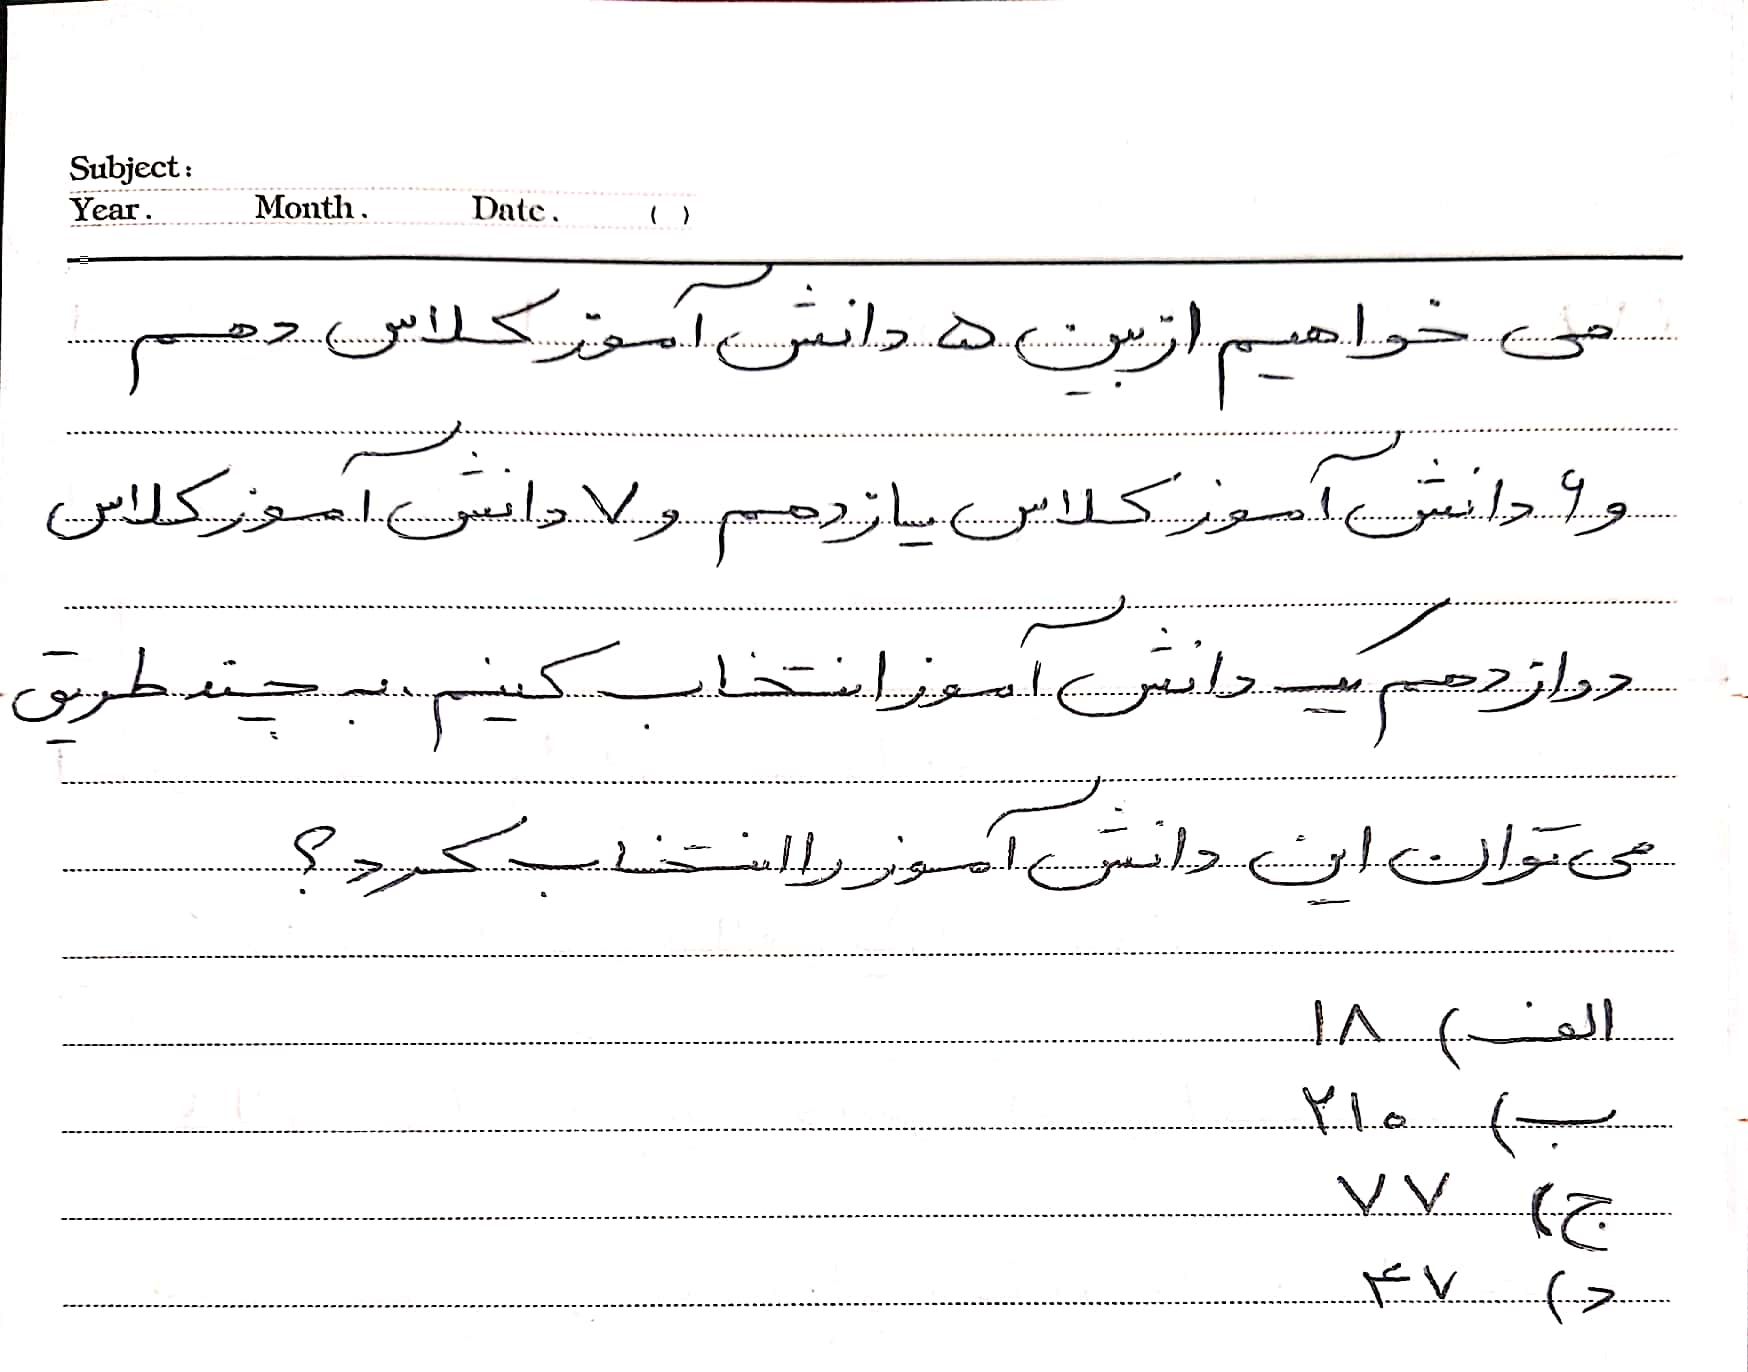 Subject:
Year. Month. Date. ( )
می خواهیم از بین ۵ دانش آموز کلاس دهم
و ۶ دانش آموز کلاس یازدهم و ۷ دانش آموز کلاس
دوازدهم یک دانش آموز انتخاب کنیم ، به چند طریق
می توان این دانش آموز را انتخاب کرد ؟
الف) ۱۸
ب) ۲۱۰
ج) ۷۷
د) ۴۷